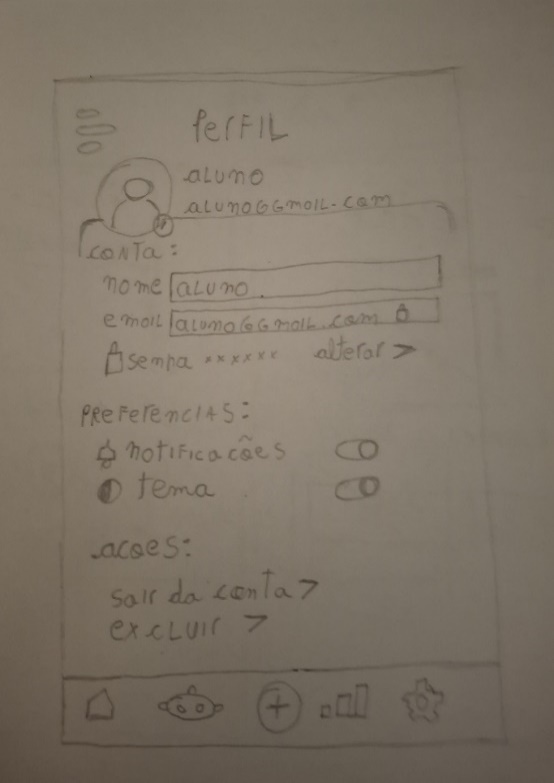 PerFIL
aLuno
aLuno@Gmail.com
conTa:
nome aLuno
email aLuno@Gmail.com
senha ****** alterar >
PreFerenciAS:
notificações
tema
acoes:
sair da conta >
excluir >